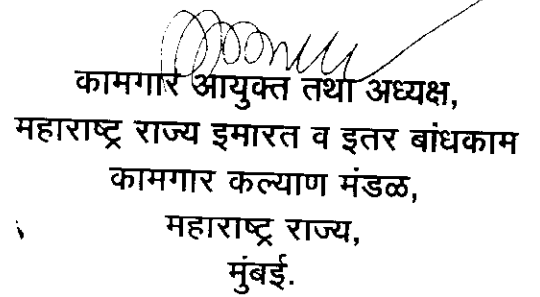 कामगार आयुक्त तथा अध्यक्ष,
महाराष्ट्र राज्य इमारत व इतर बांधकाम
कामगार कल्याण मंडळ,
महाराष्ट्र राज्य,
मुंबई.